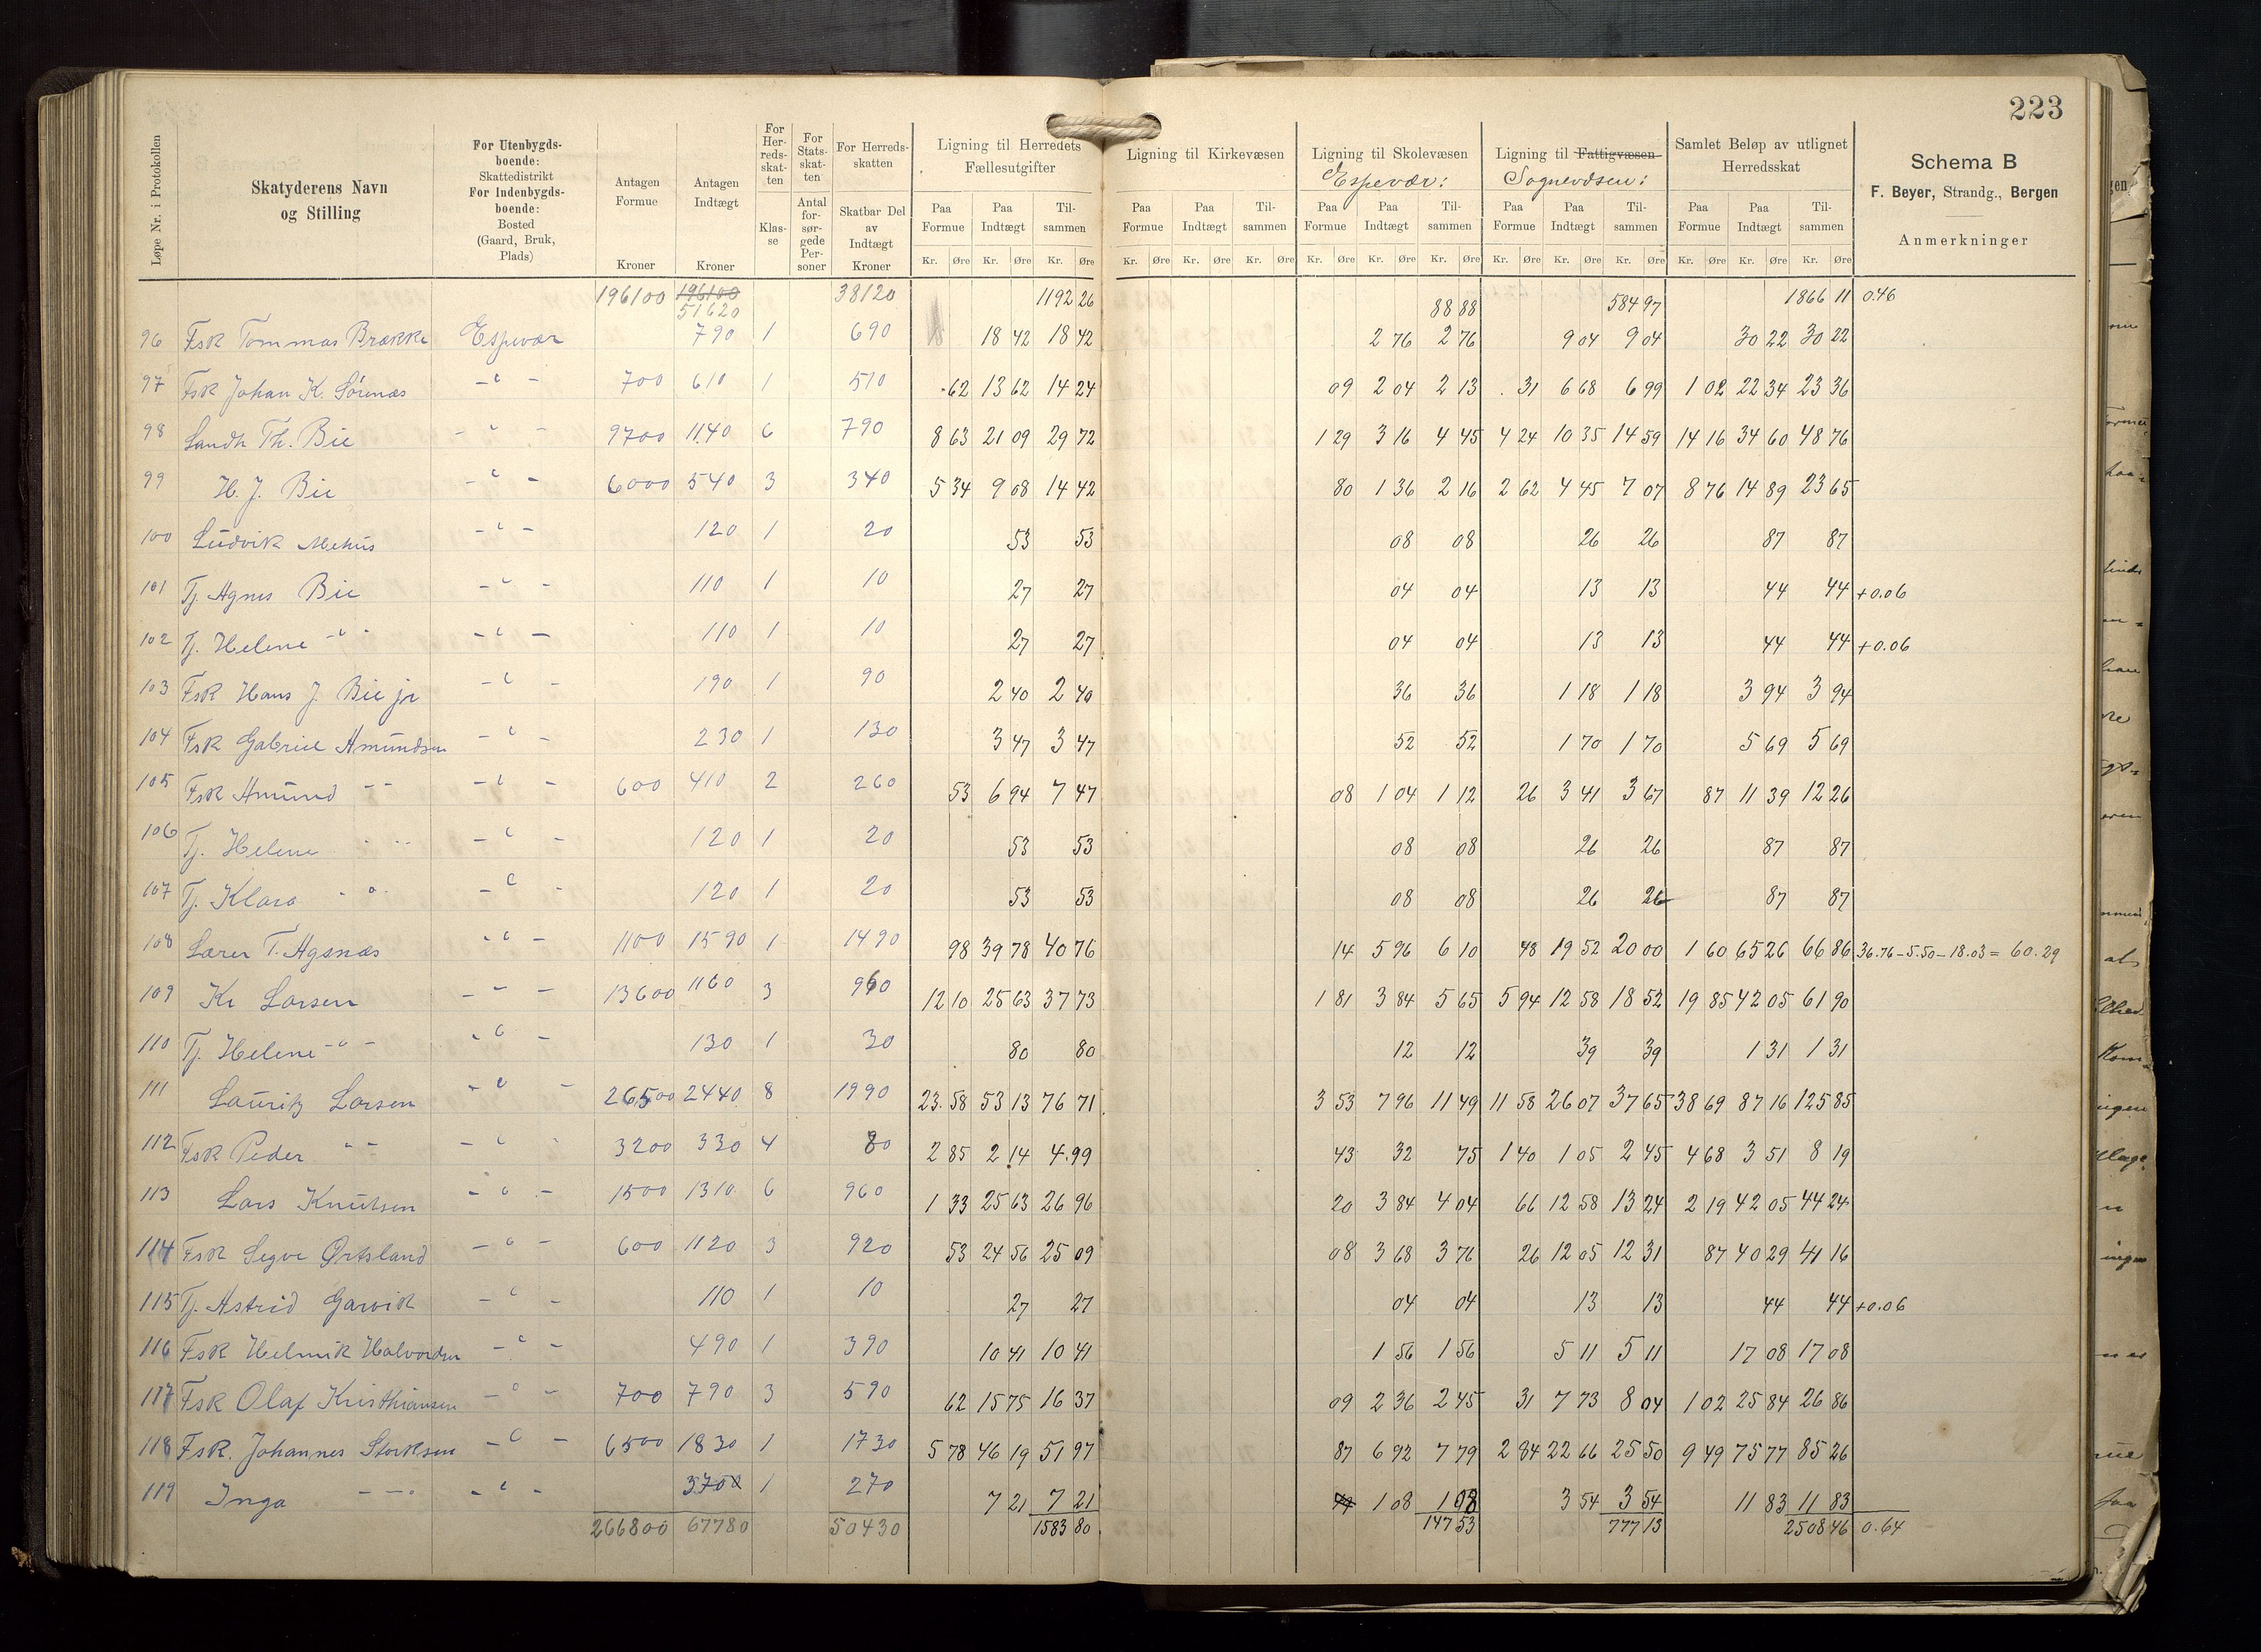 223
Løpe Nr. i Protokollen
Skatyderens Navn og Stilling
For Utenbygdsboende: Skattedistrikt For Indenbygdsboende: Bosted (Gaard, Bruk, Plads)
Antagen Formue Kroner
Antagen Indtægt Kroner
For Herredsskatten Klasse
For Statsskatten Antal forsørgede Personer
For Herredsskatten Skatbar Del av Indtægt Kroner
Ligning til Herredets Fællesutgifter
Ligning til Kirkevæsen
Ligning til Skolevæsen Espevær:
Ligning til Fattigvæsen Sognevæsen:
Samlet Beløp av utlignet Herredsskat
Schema B
F. Beyer, Strandg., Bergen
Anmerkninger
Paa Formue Paa Indtægt Tilsammen Paa Formue Paa Indtægt Tilsammen Paa Formue Paa Indtægt Tilsammen Paa Formue Paa Indtægt Tilsammen Paa Formue Paa Indtægt Tilsammen
Kr. Øre Kr. Øre Kr. Øre Kr. Øre Kr. Øre Kr. Øre Kr. Øre Kr. Øre Kr. Øre Kr. Øre Kr. Øre Kr. Øre Kr. Øre Kr. Øre Kr. Øre
196100 196100 51620 38120 1192 26 88 88 584 97 1866 11 0.46
96 Fsk Tommas Brække Espevær 790 1 690 18 42 18 42 2 76 2 76 9 04 9 04 30 22 30 22
97 Fsk Johan K. Sørenæs -"- 700 610 1 510 62 13 62 14 24 09 2 04 2 13 31 6 68 6 99 1 02 22 34 23 36
98 Landh Th. Bie -"- 9700 1140 6 790 8 63 21 09 29 72 1 29 3 16 4 45 4 24 10 35 14 59 14 16 34 60 48 76
99 H. J. Bie -"- 6000 540 3 340 5 34 9 08 14 42 80 1 36 2 16 2 62 4 45 7 07 8 76 14 89 23 65
100 Ludvik Mehus -"- 120 1 20 53 53 08 08 26 26 87 87
101 Tj. Agnes Bie -"- 110 1 10 27 27 04 04 13 13 44 44 +0.06
102 Tj. Helene -"- -"- 110 1 10 27 27 04 04 13 13 44 44 +0.06
103 Fsk Hans J. Bie jr -"- 190 1 90 2 40 2 40 36 36 1 18 1 18 3 94 3 94
104 Fsk Gabriel Amundsen -"- 230 1 130 3 47 3 47 52 52 1 70 1 70 5 69 5 69
105 Fsk Amund -"- -"- 600 410 2 260 53 6 94 7 47 08 1 04 1 12 26 3 41 3 67 87 11 39 12 26
106 Tj. Helene -"- -"- 120 1 20 53 53 08 08 26 26 87 87
107 Tj. Klara -"- -"- 120 1 20 53 53 08 08 26 26 87 87
108 Lærer T. Agsnæs -"- 1100 1590 1 1490 98 39 78 40 76 14 5 96 6 10 48 19 52 20 00 1 60 65 26 66 86 36.76-5.50-18.03=60.29
109 Kr Larsen -"- 13600 1160 3 960 12 10 25 63 37 73 1 81 3 84 5 65 5 94 12 58 18 52 19 85 42 05 61 90
110 Tj. Helene -"- -"- 130 1 30 80 80 12 12 39 39 1 31 1 31
111 Lauritz Larsen -"- 26500 2440 8 1990 23.58 53 13 76 71 3 53 7 96 11 49 11 58 26 07 37 65 38 69 87 16 125 85
112 Fsk Peder -"- -"- 3200 330 4 80 2 85 2 14 4.99 43 32 75 1 40 1 05 2 45 4 68 3 51 8 19
113 Lars Knutsen -"- 1500 1310 6 960 1 33 25 63 26 96 20 3 84 4 04 66 12 58 13 24 2 19 42 05 44 24
114 Fsk Segve Ørtsland -"- 600 1120 3 920 53 24 56 25 09 08 3 68 3 76 26 12 05 12 31 87 40 29 41 16
115 Tj. Astrid Garvik -"- 110 1 10 27 27 04 04 13 13 44 44 +0.06
116 Fsk Helmik Halvorsen -"- 490 1 390 10 41 10 41 1 56 1 56 5 11 5 11 17 08 17 08
117 Fsk Olaf Kristhiansen -"- 700 790 3 590 62 15 75 16 37 09 2 36 2 45 31 7 73 8 04 1 02 25 84 26 86
118 Fsk. Johannes Storksen -"- 6500 1830 1 1730 5 78 46 19 51 97 87 6 92 7 79 2 84 22 66 25 50 9 49 75 77 85 26
119 Inga -"- -"- 370 1 270 7 21 7 21 1 08 1 08 3 54 3 54 11 83 11 83
266800 67780 50430 1583 80 147 53 777 13 2508 46 0.64